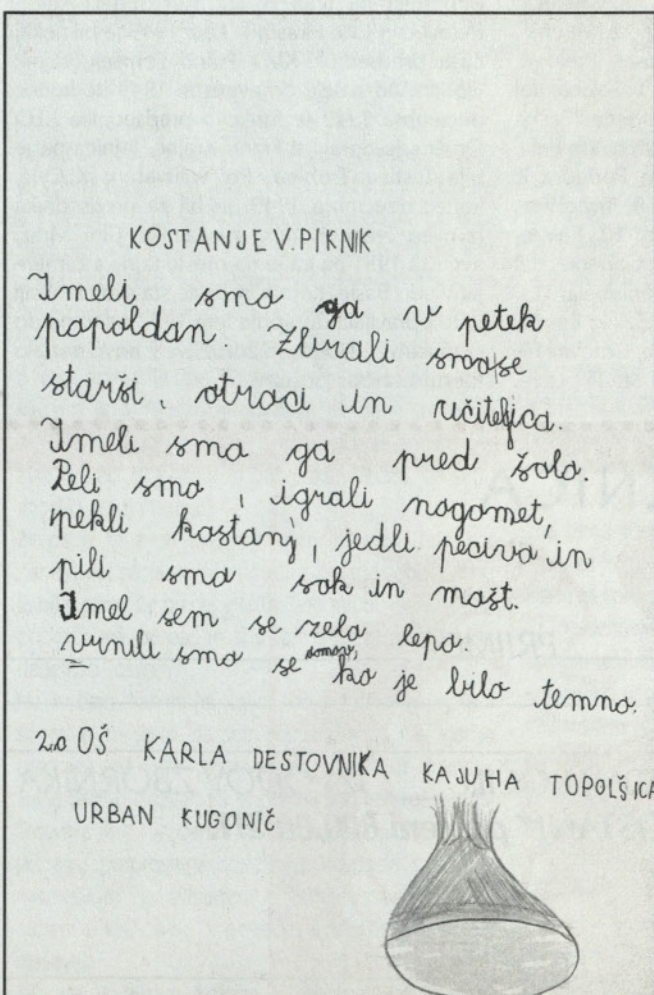 KOSTANJEV PIKNIK
Imeli smo ga v petek
popoldan. Zbrali smo se
starši, otroci in učiteljica.
Imeli smo ga pred šolo.
Peli smo, igrali nogomet,
pekli kostanj, jedli pecivo in
pili smo sok in mošt.
Imel sem se zelo lepo.
vrnili smo se domov, ko je bilo temno.
2.a OŠ KARLA DESTOVNIKA KAJUHA TOPOLŠICA
URBAN KUGONIČ